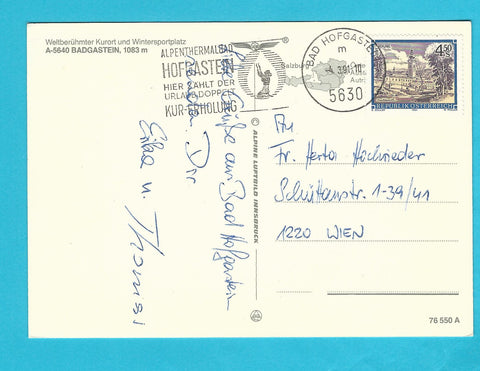 Weltberühmter Kurort und Wintersportplatz
A-5640 BADGASTEIN, 1083 m
ALPENTHERMALBAD
HOFGASTEIN
HIER ZÄHLT DER
URLAUB DOPPELT
KUR-ERHOLUNG
Salzburg
BAD HOFGASTEIN
m
5630
4.50
REPUBLIK ÖSTERREICH
Liebe Grüße aus Bad Hofgastein
senden Dir
Erika u. Thomas
© ALPINE LUFTBILD INNSBRUCK
An
Fr. Herta Hochrieder
Schüttaustr. 1-39/41
1220 WIEN
76 550 A